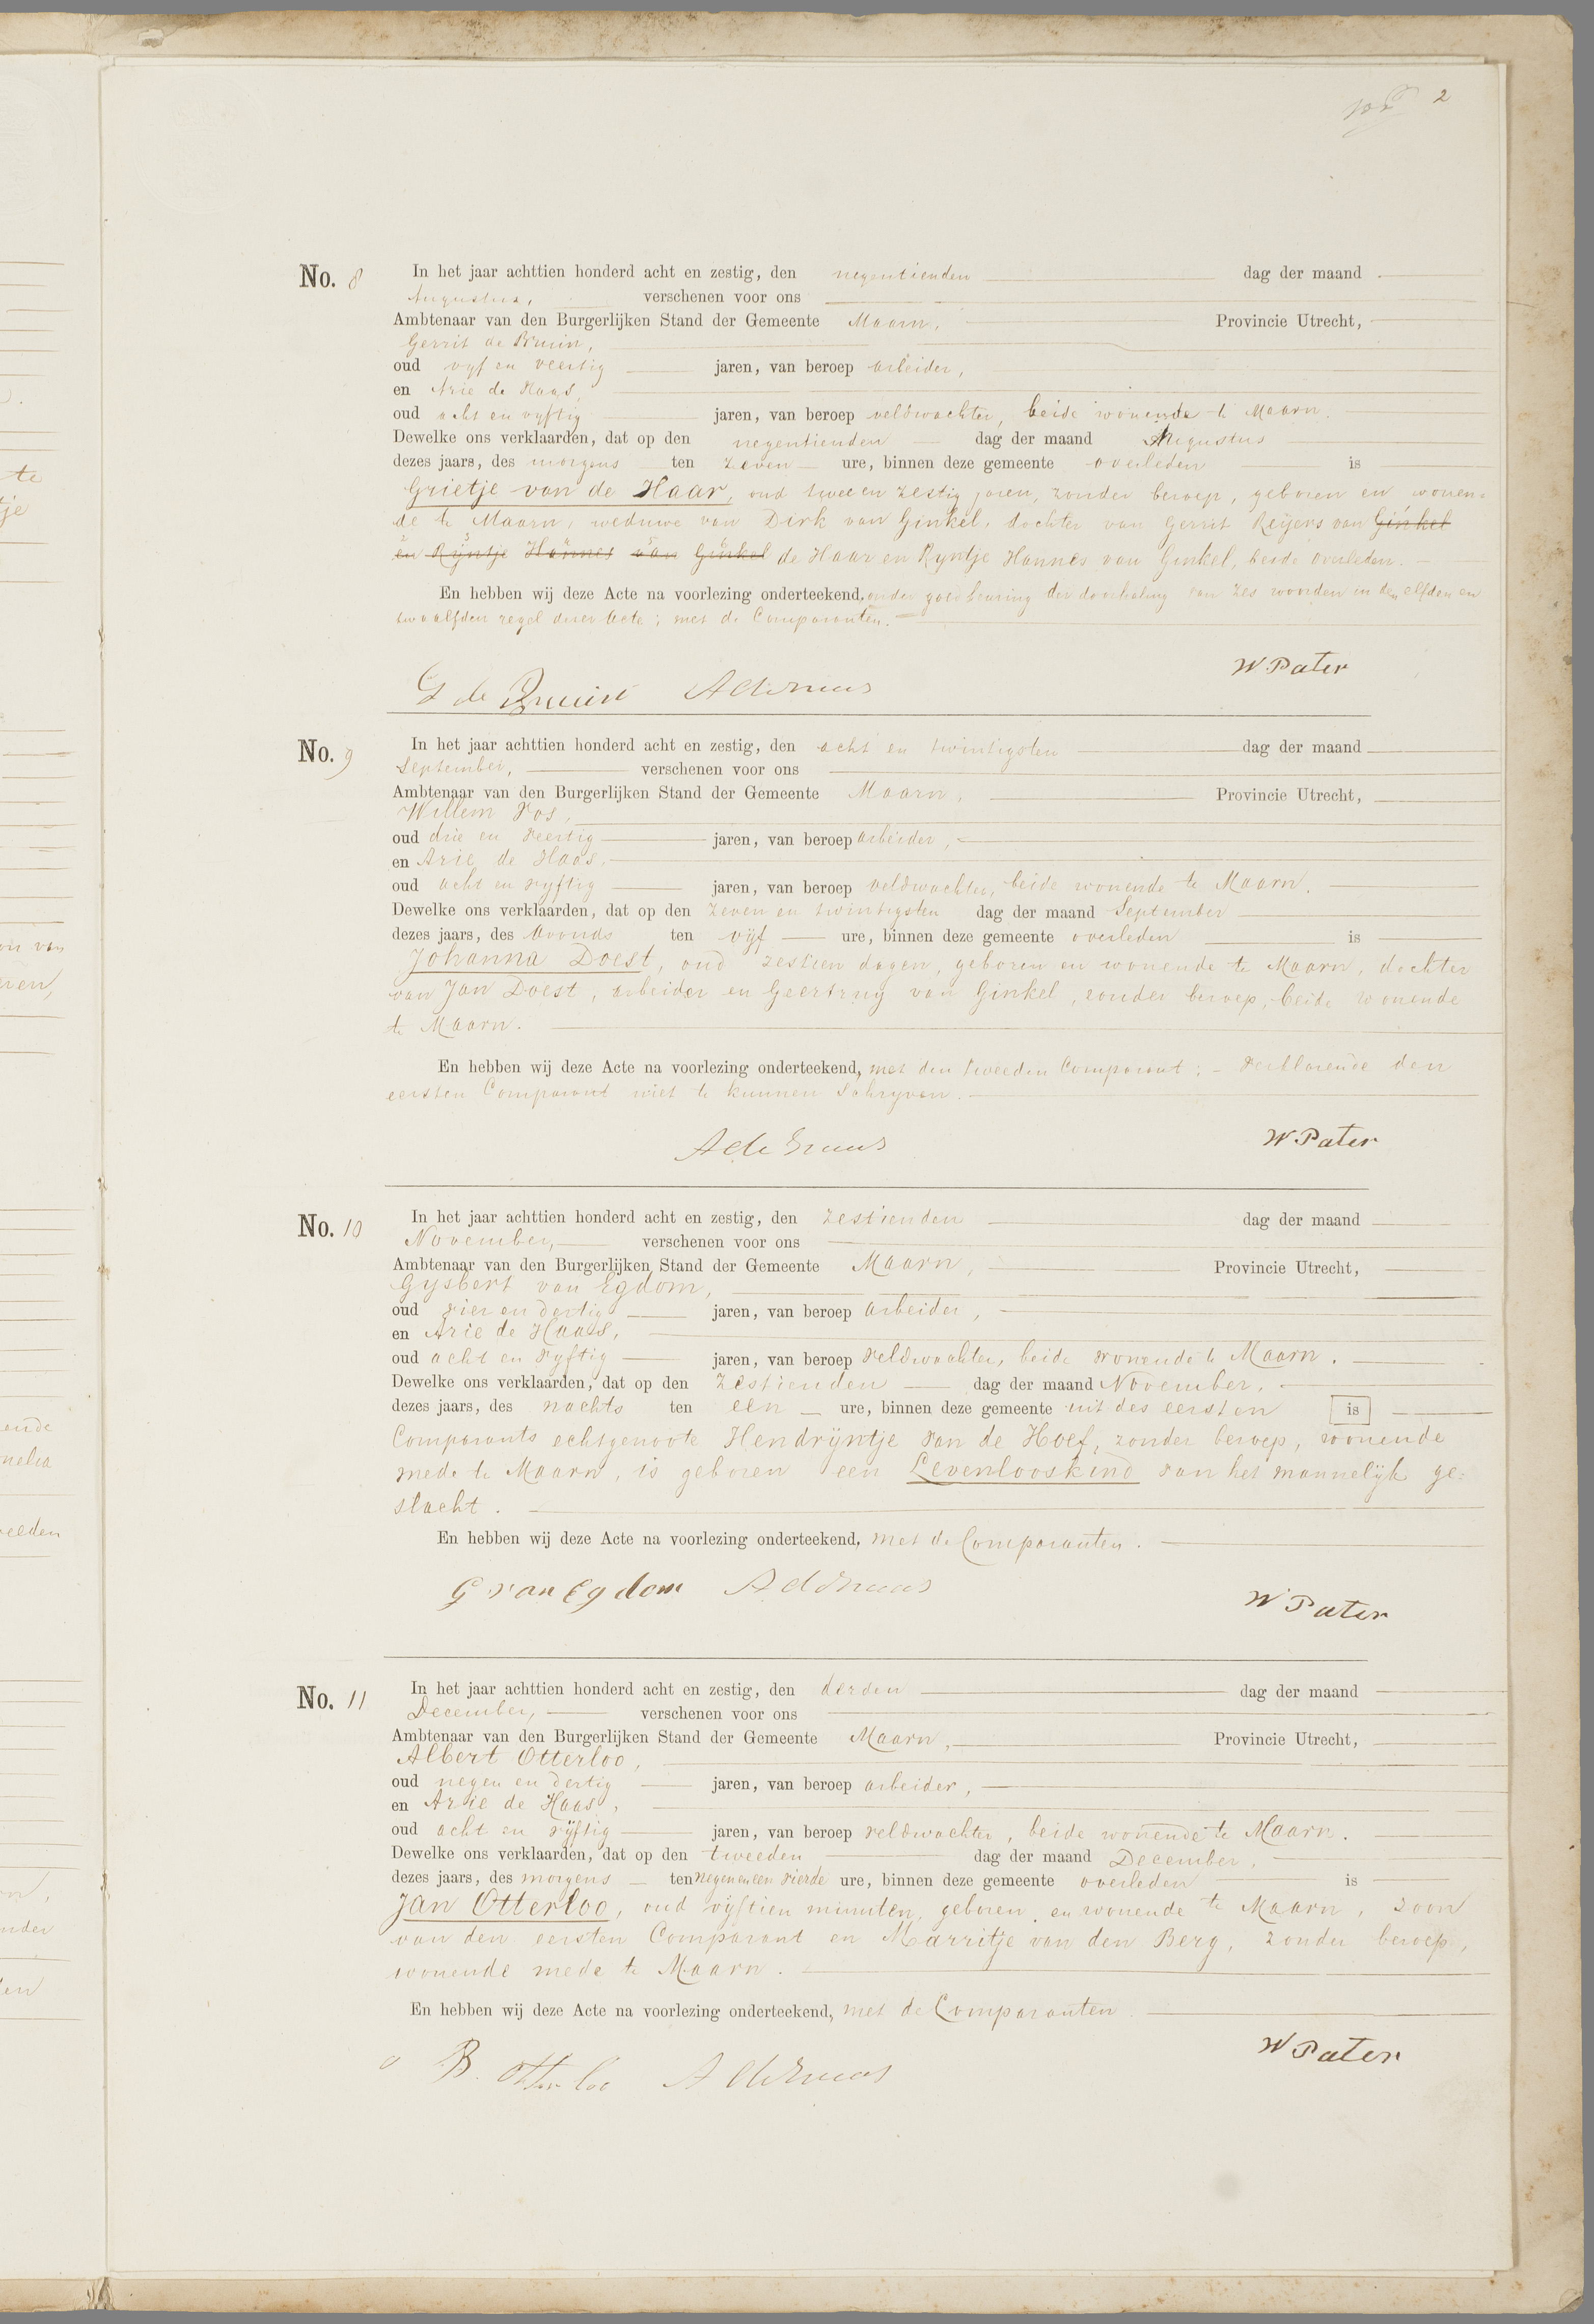 2
No. 8 In het jaar achttien honderd acht en zestig, den negentienden dag der maand
Augustus, verschenen voor ons
Ambtenaar van den Burgerlijken Stand der Gemeente Maarn, Provincie Utrecht,
Gerrit de Bruin,
oud vyf en veertig jaren, van beroep arbeider,
en Arie de Haas,
oud acht en vyftig jaren, van beroep veldwachter, beide wonende te Maarn.
Dewelke ons verklaarden, dat op den negentienden dag der maand Augustus
dezes jaars, des morgens ten zeven ure, binnen deze gemeente overleden is
Grietje van de Haar, oud twee en zestig jaren, zonder beroep, geboren en wonen-
de te Maarn, weduwe van Dirk van Ginkel, dochter van Gerrit Reijers van Ginkel
en Rijntje Hannes van Ginkel de Haar en Ryntje Hannes van Ginkel, beide overleden.
En hebben wij deze Acte na voorlezing onderteekend, onder goedkeuring der doorhaling van zes woorden in den elfden en
twaalfden regel dezer acte; met de Comparanten.
G de Bruin A de Haas W Pater
No. 9 In het jaar achttien honderd acht en zestig, den acht en twintigsten dag der maand
September, verschenen voor ons
Ambtenaar van den Burgerlijken Stand der Gemeente Maarn, Provincie Utrecht,
Willem Vos,
oud drie en veertig jaren, van beroep arbeider,
en Arie de Haas,
oud acht en vyftig jaren, van beroep veldwachter, beide wonende te Maarn.
Dewelke ons verklaarden, dat op den zeven en twintigsten dag der maand September
dezes jaars, des avonds ten vijf ure, binnen deze gemeente overleden is
Johanna Doest, oud zestien dagen, geboren en wonende te Maarn, dochter
van Jan Doest, arbeider en Geertruy van Ginkel, zonder beroep, beide wonende
te Maarn.
En hebben wij deze Acte na voorlezing onderteekend, met den tweeden Comparant; - verklarende den
eersten Comparant niet te kunnen schryven.
A de Haas W Pater
No. 10 In het jaar achttien honderd acht en zestig, den zestienden dag der maand
November, verschenen voor ons
Ambtenaar van den Burgerlijken Stand der Gemeente Maarn, Provincie Utrecht,
Gysbert van Egdom,
oud vier en dertig jaren, van beroep arbeider,
en Arie de Haas,
oud acht en vyftig jaren, van beroep veldwachter, beide wonende te Maarn.
Dewelke ons verklaarden, dat op den zestienden dag der maand November,
dezes jaars, des nachts ten een ure, binnen deze gemeente uit des eersten is
Comparants echtgenoote Hendrijntje van de Hoef, zonder beroep, wonende
mede te Maarn, is geboren een Levenlooskind van het mannelijk ge-
slacht.
En hebben wij deze Acte na voorlezing onderteekend, met de Comparanten.
G van Egdom A de Haas W Pater
No. 11 In het jaar achttien honderd acht en zestig, den derden dag der maand
December, verschenen voor ons
Ambtenaar van den Burgerlijken Stand der Gemeente Maarn, Provincie Utrecht,
Albert Otterloo,
oud negen en dertig jaren, van beroep arbeider,
en Arie de Haas,
oud acht en vijftig jaren, van beroep veldwachter, beide wonende te Maarn.
Dewelke ons verklaarden, dat op den tweeden dag der maand December,
dezes jaars, des morgens ten negen en een vierde ure, binnen deze gemeente overleden is
Jan Otterloo, oud vijftien minuten, geboren en wonende te Maarn, zoon
van den eersten Comparant en Marritje van den Berg, zonder beroep,
wonende mede te Maarn.
En hebben wij deze Acte na voorlezing onderteekend, met de Comparanten
B. Otterloo A de Haas W Pater